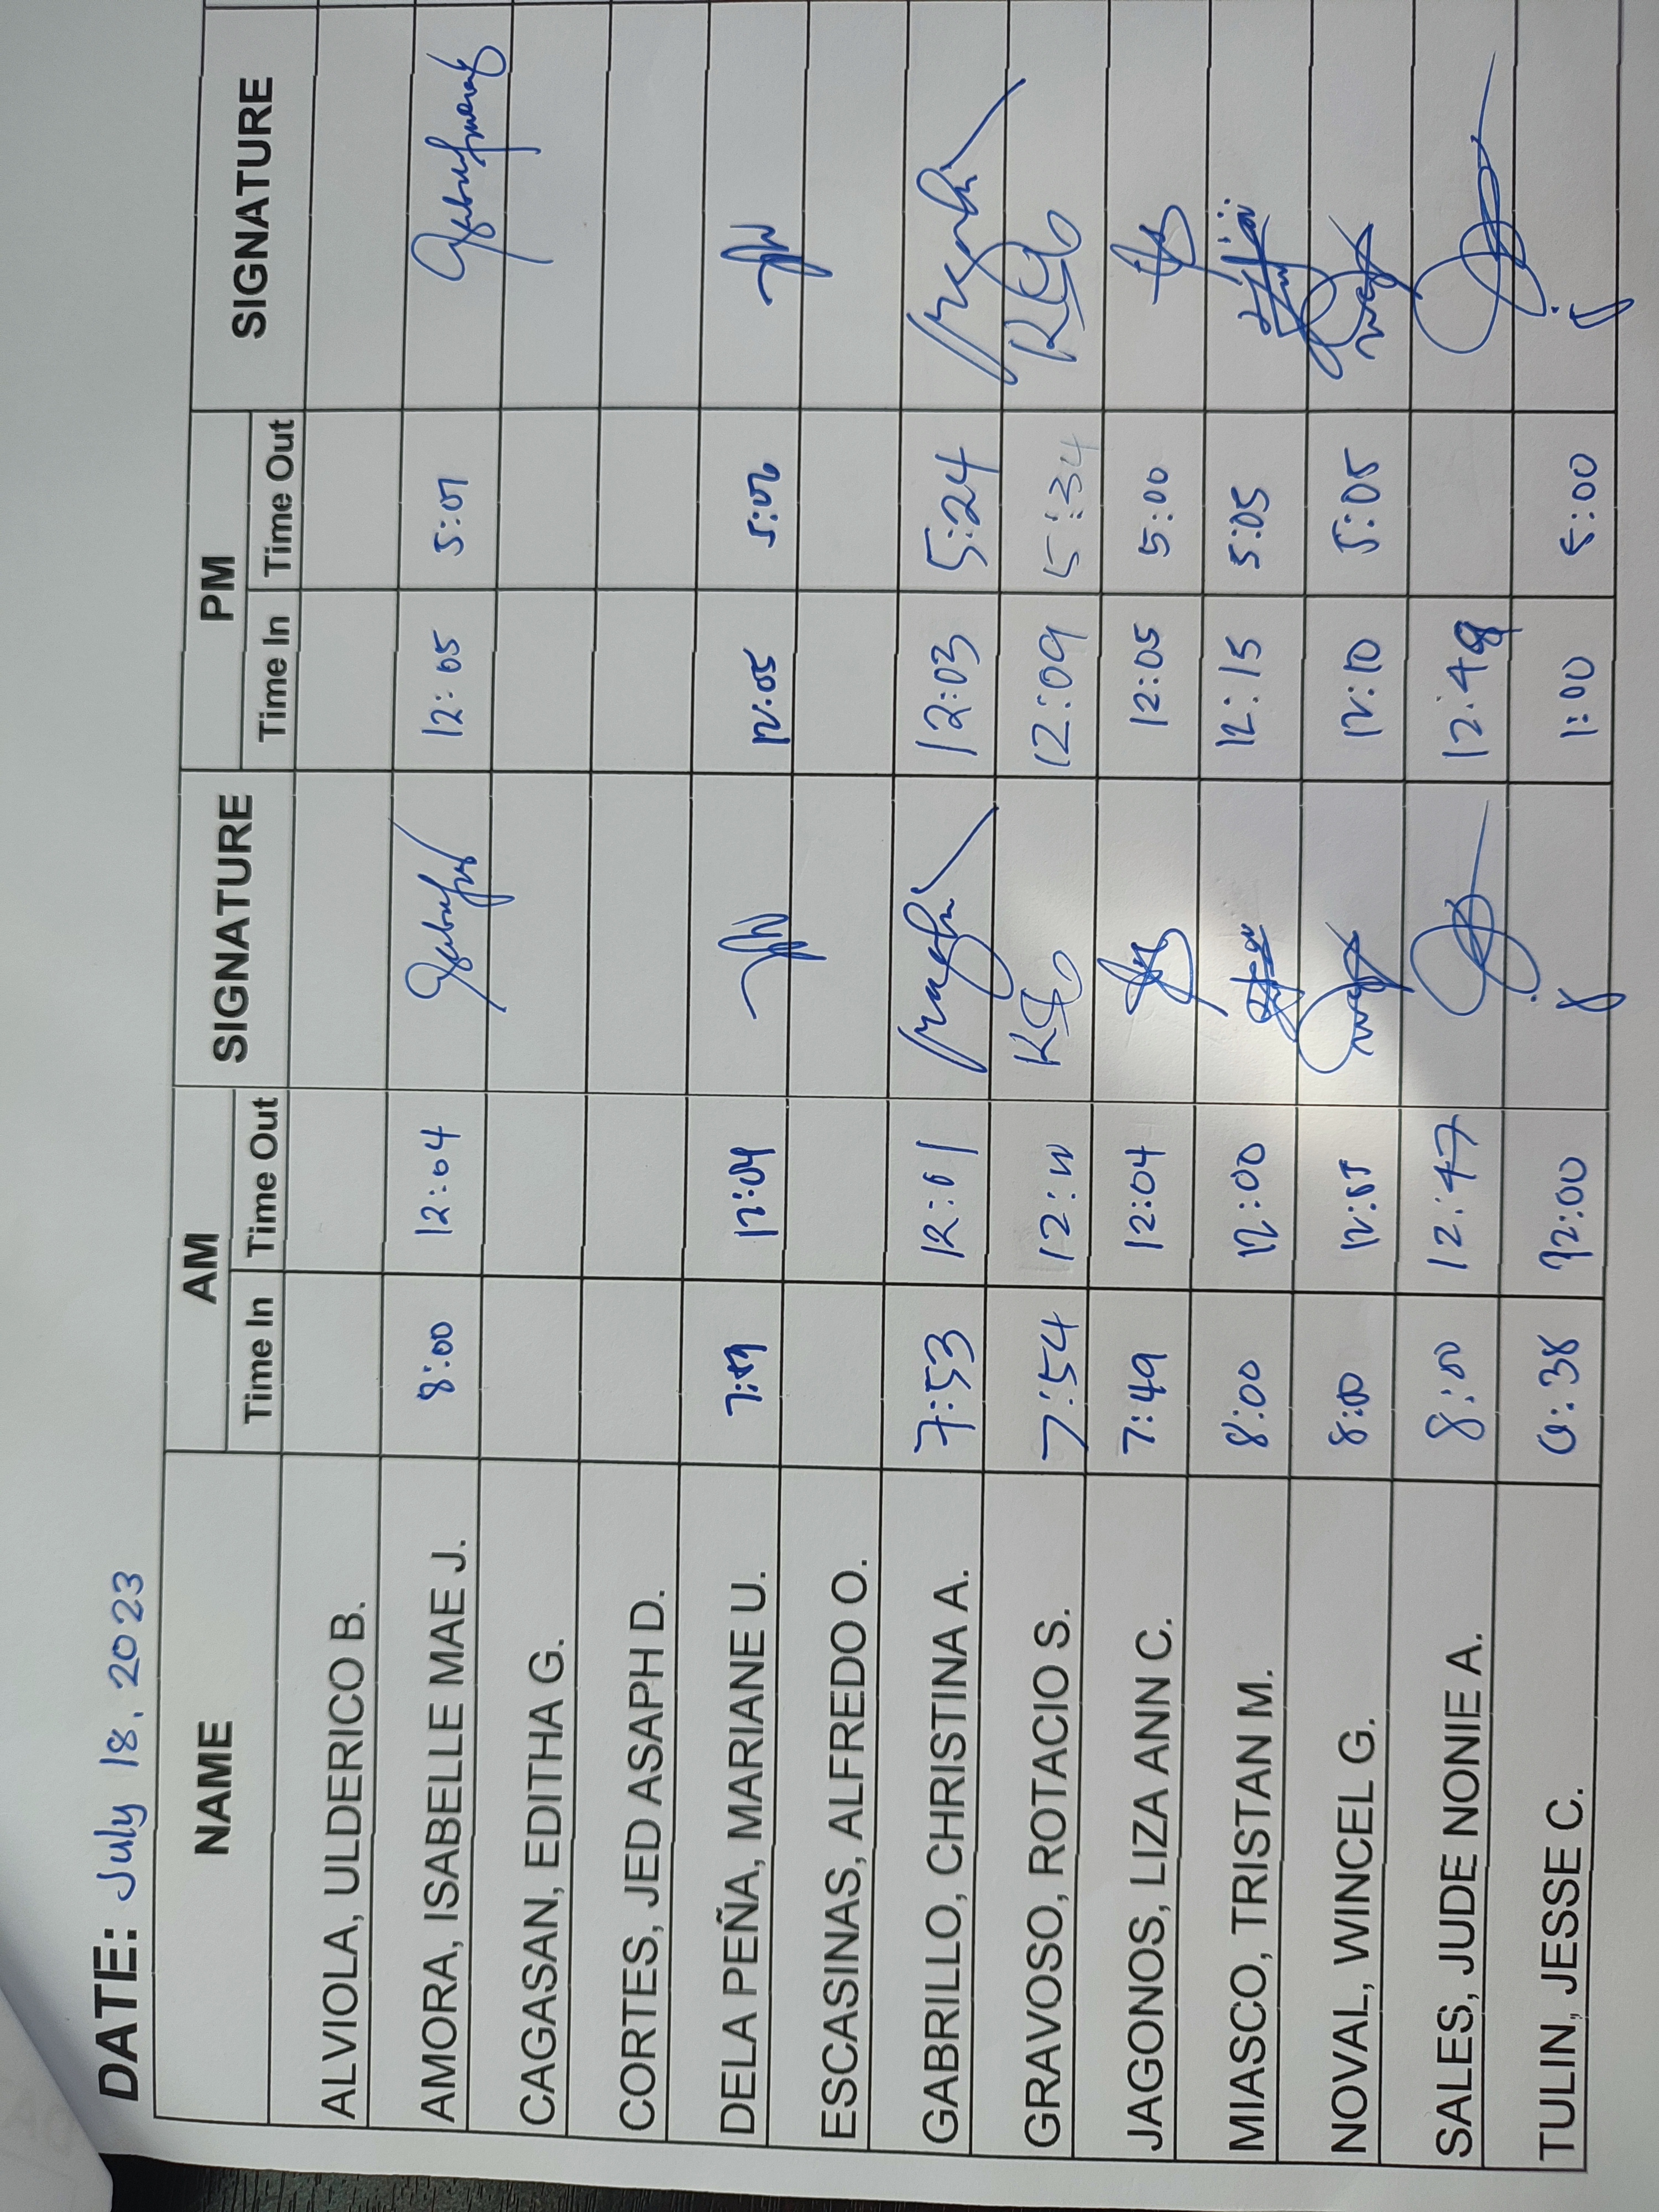 DATE: July 18, 2023
NAME AM SIGNATURE PM SIGNATURE
Time In Time Out Time In Time Out
ALVIOLA, ULDERICO B.
AMORA, ISABELLE MAE J. 8:00 12:04 12:05 5:01
CAGASAN, EDITHA G.
CORTES, JED ASAPH D.
DELA PEÑA, MARIANE U. 12:04 12:05
ESCASINAS, ALFREDO O.
GABRILLO, CHRISTINA A. 7:53 12:01 12:03 5:24
GRAVOSO, ROTACIO S. 7:54 12:09 5:34
JAGONOS, LIZA ANN C. 7:49 12:04 12:05 5:00
MIASCO, TRISTAN M. 8:00 12:00 12:15 5:05
NOVAL, WINCEL G. 8:00 12:10 5:05
SALES, JUDE NONIE A. 8:00 12:47 12:48
TULIN, JESSE C. 12:00 1:00 5:00